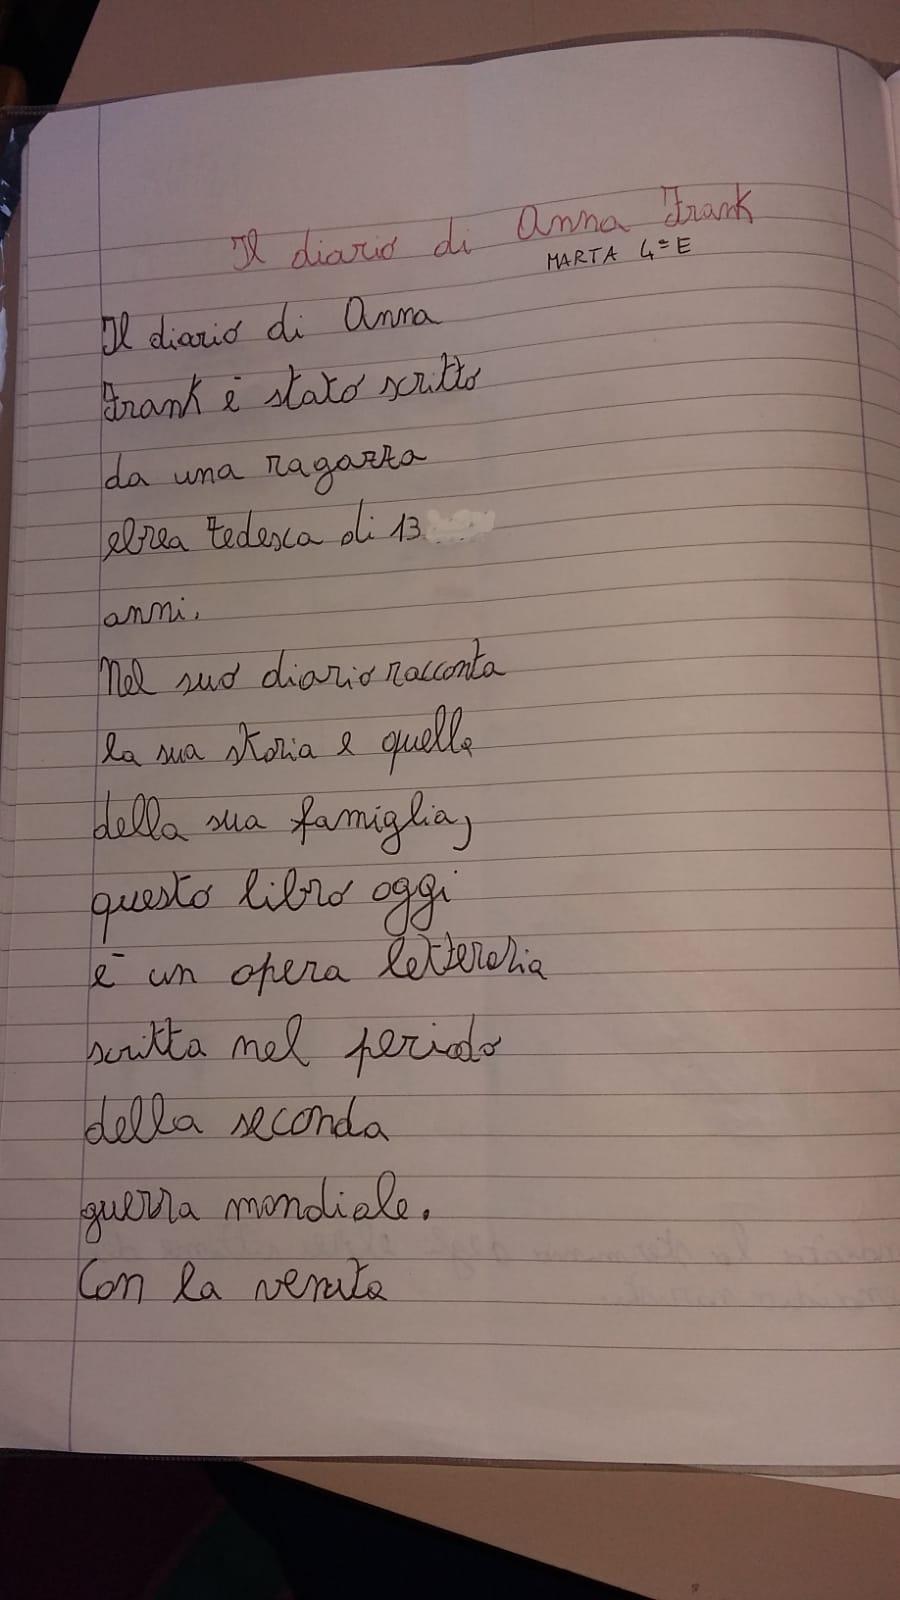 Il diario di Anna Frank
MARTA 4ª E
Il diario di Anna
Frank è stato scritto
da una ragazza
ebrea tedesca di 13
anni.
Nel suo diario racconta
la sua storia e quella
della sua famiglia,
questo libro oggi
è un opera letteraria
scritta nel periodo
della seconda
guerra mondiale.
Con la venuta